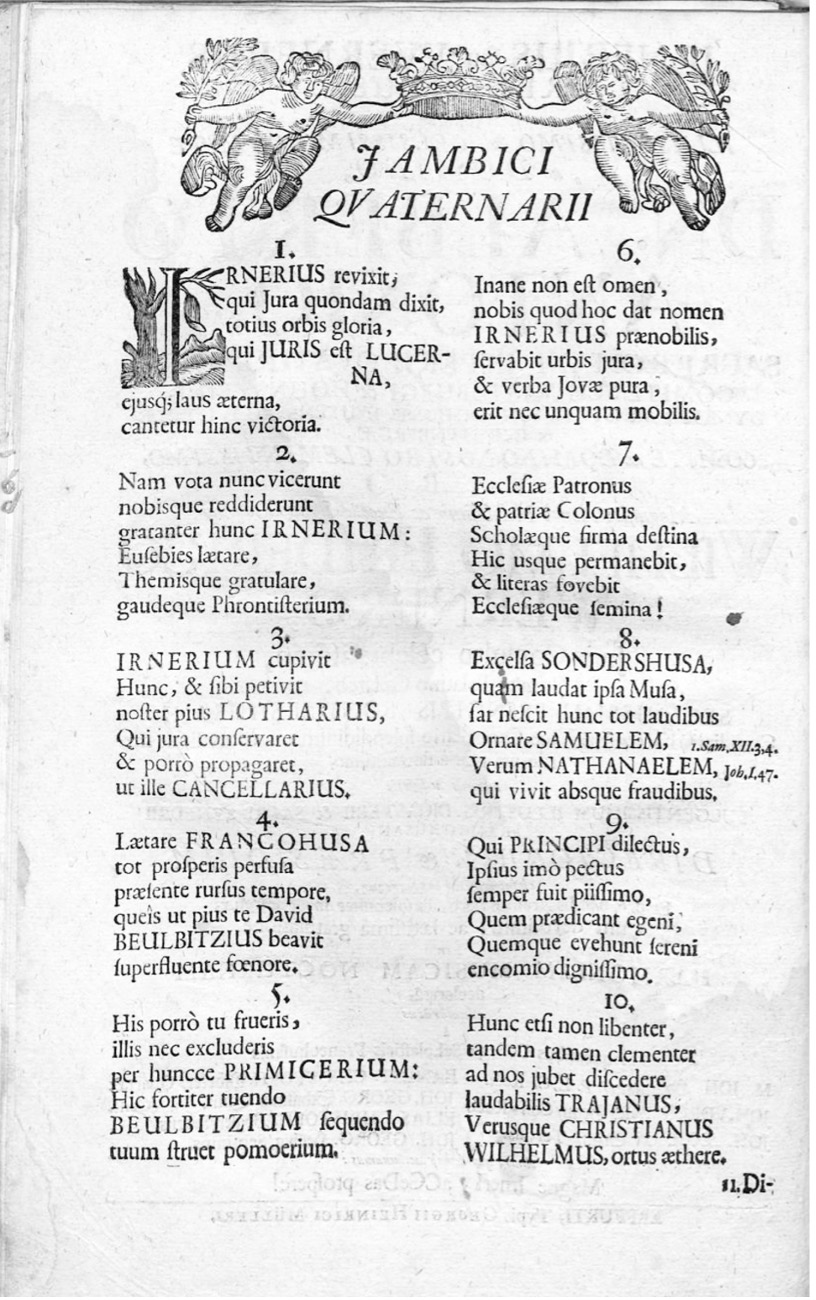 JAMBICI
QVATERNARII
1.
IRNERIUS revixit,
qui Jura quondam dixit,
totius orbis gloria,
qui JURIS eſt LUCER-
NA,
ejusq; laus æterna,
cantetur hinc victoria.
2.
Nam vota nunc vicerunt
nobisque reddiderunt
gratanter hunc IRNERIUM:
Euſebies lætare,
Themisque gratulare,
gaudeque Phrontiſterium.
3.
IRNERIUM cupivit
Hunc, & ſibi petivit
noſter pius LOTHARIUS,
Qui jura conſervaret
& porrò propagaret,
ut ille CANCELLARIUS.
4.
Lætare FRANCOHUSA
tot proſperis perfuſa
præſente rurſus tempore,
queîs ut pius te David
BEULBITZIUS beavit
ſuperfluente fœnore.
5.
His porrò tu frueris,
illis nec excluderis
per huncce PRIMICERIUM:
Hic fortiter tuendo
BEULBITZIUM ſequendo
tuum ſtruet pomoerium.
6.
Inane non eſt omen,
nobis quod hoc dat nomen
IRNERIUS prænobilis,
ſervabit urbis jura,
& verba Jovæ pura,
erit nec unquam mobilis.
7.
Eccleſiæ Patronus
& patriæ Colonus
Scholæque firma deſtina
Hic usque permanebit,
& literas fovebit
Eccleſiæque ſemina!
8.
Excelſa SONDERSHUSA,
quam laudat ipſa Muſa,
ſat neſcit hunc tot laudibus
Ornare SAMUELEM, 1. Sam. XII. 3, 4.
Verum NATHANAELEM, Joh. I. 47.
qui vivit absque fraudibus.
9.
Qui PRINCIPI dilectus,
Ipſius imò pectus
ſemper fuit piiſſimo,
Quem prædicant egeni,
Quemque evehunt ſereni
encomio digniſſimo.
10.
Hunc etſi non libenter,
tandem tamen clementer
ad nos jubet diſcedere
laudabilis TRAJANUS,
Verusque CHRISTIANUS
WILHELMUS, ortus æthere.
11. Di-